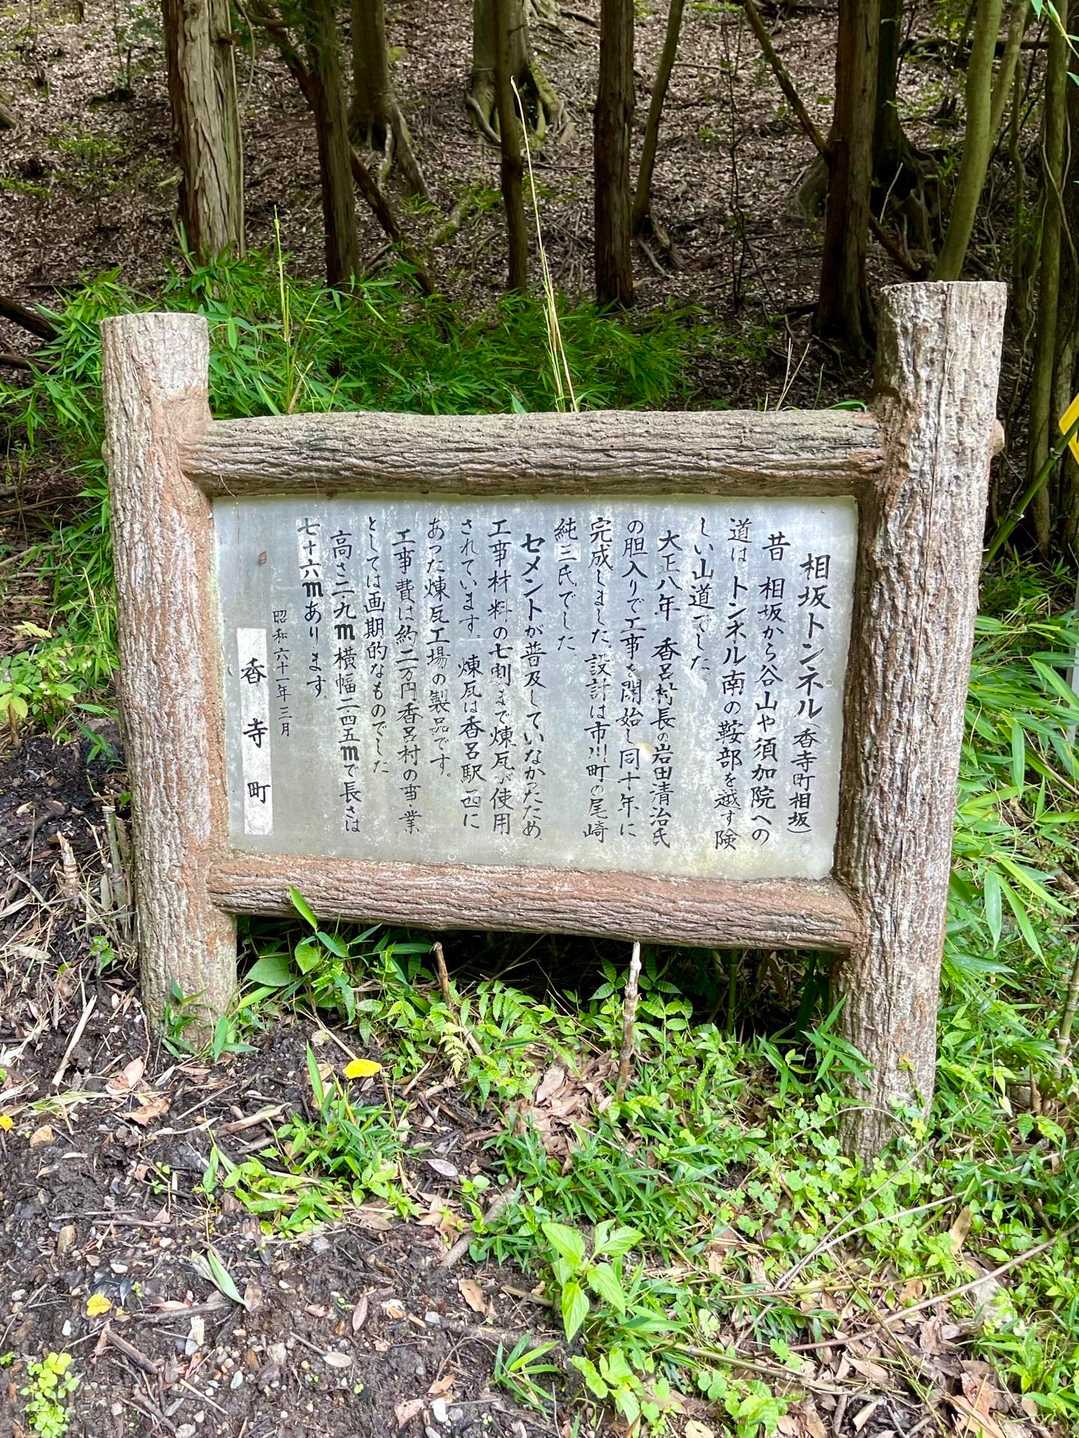 相坂トンネル(香寺町相坂)
昔 相坂から谷山や須加院への
道は トンネル南の鞍部を越す険
しい山道でした
大正八年 香呂村長の岩田清治氏
の胆入りで工事を開始し同十年に
完成しました 設計は市川町の尾崎
純三氏でした
セメントが普及していなかったため
工事材料の七割まで煉瓦が使用
されています 煉瓦は香呂駅西に
あった煉瓦工場の製品です。
工事費は約二万円香呂村の事業
としては画期的なものでした
高さ二.九m横幅二.四五mで長さは
七十六mあります
昭和六十一年三月
香寺町